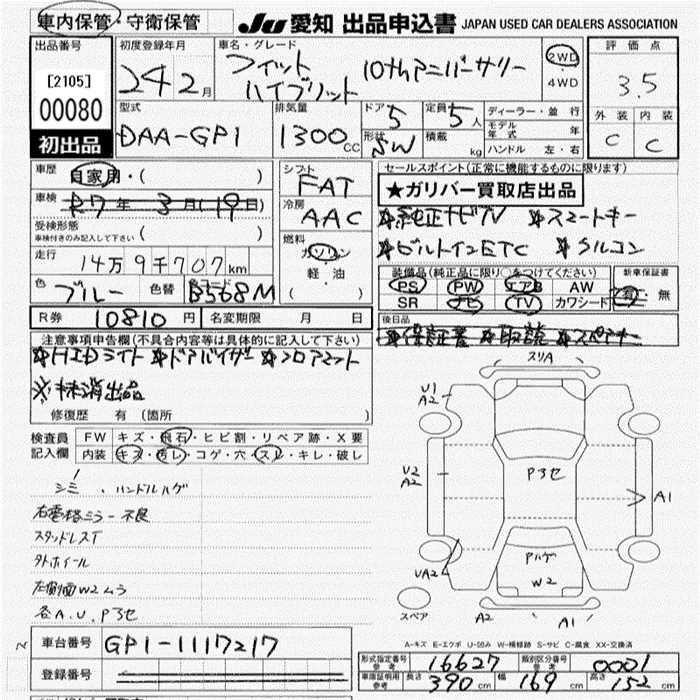 車内保管・守衛保管
JU 愛知 出品申込書 JAPAN USED CAR DEALERS ASSOCIATION
出品番号
[2105]
00080
初出品
初度登録年月
24年2月
車名・グレード
フィット
ハイブリット
10thアニバーサリー
2WD
4WD
評価点
3.5
外装 内装
C C
型式
DAA-GP1
排気量
1300cc
ドア 5
定員 5人
形状 SW
積載 kg
ディーラー・並行
モデル年式 年
ハンドル 左・右
車歴
自家用・( )
車検
R7年3月(19日)
受検形態
車検付きのみ記入して下さい ( )
走行
14万9千707km
色 ブルー
色替
カラーコード B568M
シフト
FAT
冷房
AAC
燃料
ガソリン
軽油
( )
セールスポイント(正常に機能するものに限ります)
★ガリバー買取店出品
※純正ナビTV ※スマートキー
※ビルトインETC ※クルコン
装備品(純正品に限り○をつけてください)
PS PW エアB AW
SR ナビ TV カワシート
新車保証書
有・無
R券 10810円
名変期限 月 日
後日品
※保証書 ※取説 ※スペアキー
注意事項申告欄(不具合内容等は具体的に記入して下さい)
※HIDライト ※ドアバイザー ※フロアマット
※抹消出品
修復歴 有(箇所 )
検査員記入欄
FW キズ・飛石・ヒビ割・リペア跡・X要
内装 キズ・汚レ・コゲ・穴・スレ・キレ・破レ
シミ、ハンドルハゲ
右電格ミラー不良
スタッドレスT
外ホイール
左側面W2ムラ
各A.U.Pヨセ
スリA
U1
A2
U2
A2
Pヨセ
A1
Pハゲ
W2
UA2
スペア
A2
A1
A-キズ E-エクボ U-凹み W-補修跡 S-サビ C-腐食 XX-交換済
車台番号 GP1-1117217
登録番号
形式指定番号 参考 16627
類別区分番号 参考 0001
車庫証明用 参考 長さ 390cm 幅 169cm 高さ 152cm